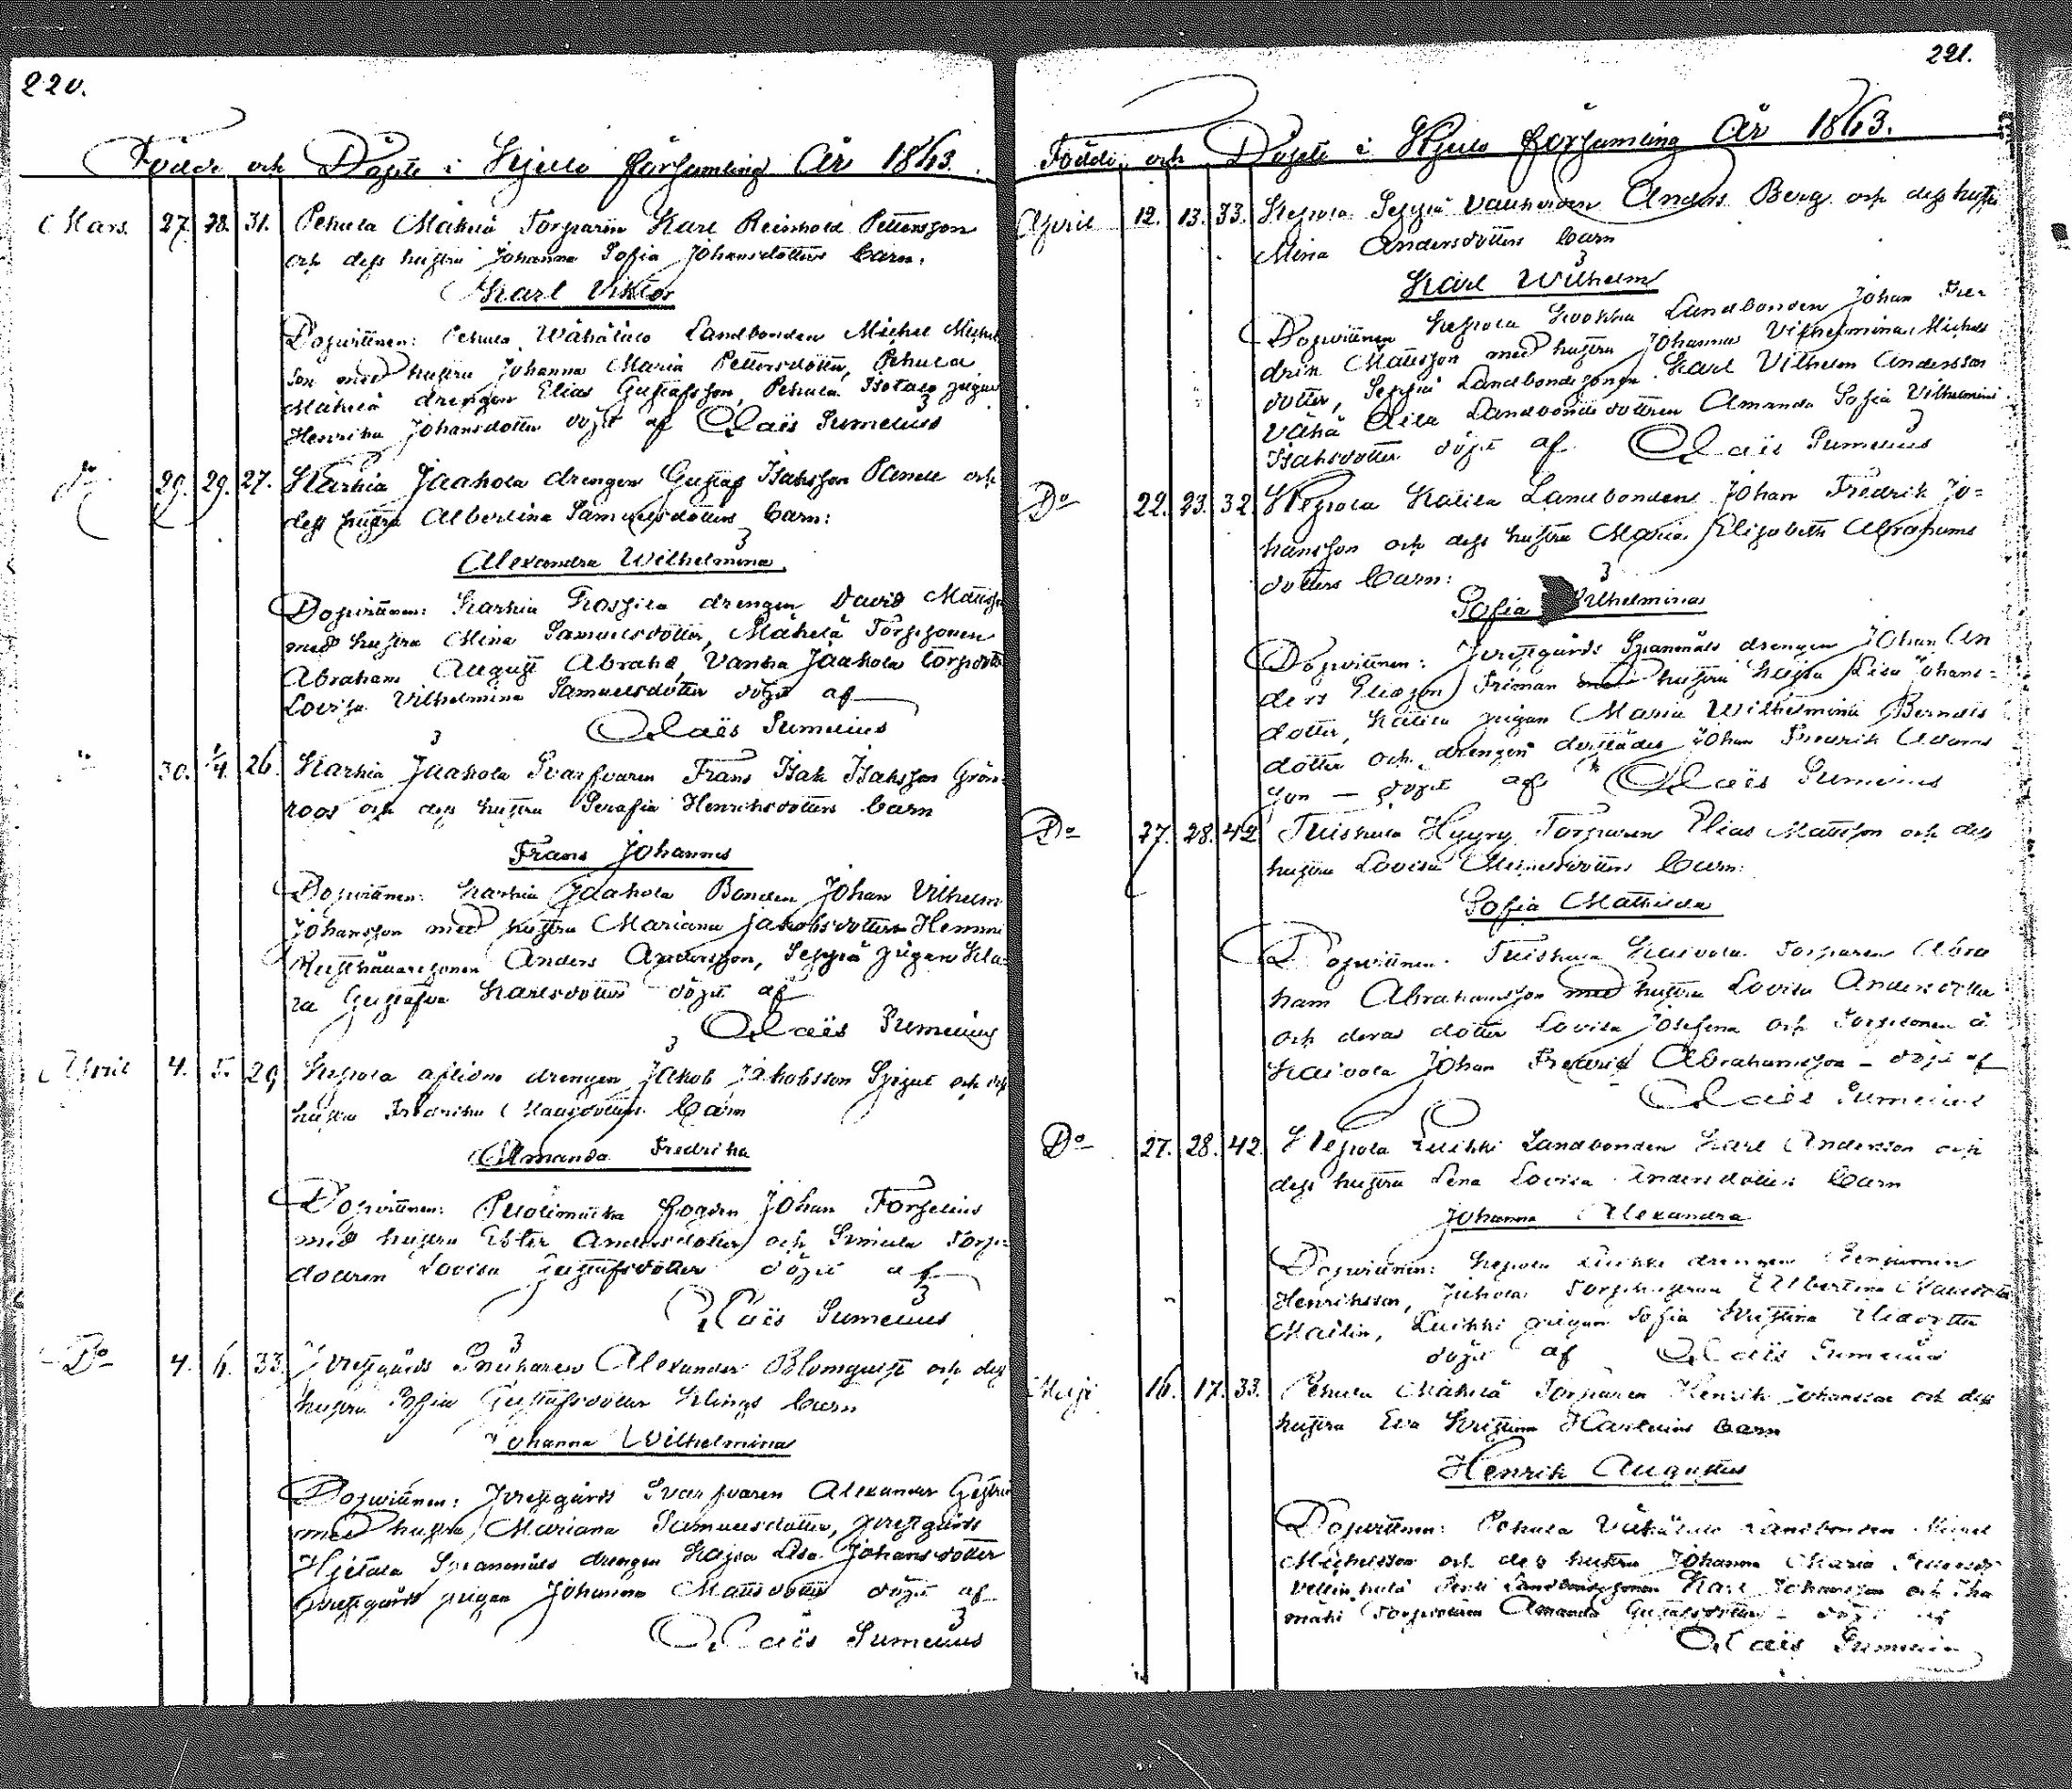 220.
Födde och Döpte i Kjulo församling År 1863.
Mars 27. 28. 31. Pehula Mäkelä Torparen Karl Reinhold Pettersson
och dess hustru Johanna Sofia Johansdotters barn.
Karl Viktor
Dopvittnen: Pehula Wähätalo Landbonden Michel Michels
son med hustru Johanna Maria Pettersdotter, Pehula
Mäkelä drengen Elias Gustafsson, Pehula Isotalo pigan
Henrika Johansdotter döpt af Claës Sumelius
Do 29. 29. 27. Karhia Jaakola drengen Gustaf Isaksson Panele och
dess hustru Albertina Samuelsdotters barn:
Alexandra Wilhelmina
Dopvittnen: Karhia drengen David Mattsson
med hustru Mina Samuelsdotter, Mäkelä Torpsonen
Abraham August Abrahs, Vanha Jaakola torpdotr
Lovisa Vilhelmina Samuelsdotter döpt af
Claës Sumelius
" 30. 1/4. 26. Karhia Jaakola Svarfvaren Frans Isak Isaksson Grön-
roos och dess hustru Serafia Henriksdotters barn
Frans Johannes
Dopvittnen: Karhia Jaakola Bonden Johan Vilhelm
Johansson med hustru Mariana Jakobsdotter Hemmi
Rusthållaresonen Anders Andersson, Seppä pigan Kla-
ra Gustafva Karlsdotter döpt af
Claës Sumelius
April 4. 5. 29 Kepola afl:dne drengen Jakob Jakobsson och dess
hustru Fredrika barn
Amanda Fredrika
Dopvittnen: fogden Johan Forselius
med hustru Ester Andersdotter och Torp-
dottren Lovisa Gustafsdotter döpt af
Claës Sumelius
Do 4. 6. 33. Prestgårds Snickaren Alexander Blomquist och dess
hustru Sofia Gustafsdotter Klings barn
Johanna Wilhelmina
Dopvittnen: Prestgårds Svarfvaren Alexander
med hustru Mariana Samuelsdotter, Prestgårds
Hjetala Spanmåls drengen Kajsa Lisa Johansdotter
Prestgårds pigan Johanna Mattsdotter döpt af
Claës Sumelius
221.
Födde och Döpte i Kjulo församling År 1863.
April 12. 13. 33. Kepola Seppä Anders Berg och dess hustru
Mina Andersdotters barn
Karl Wilhelm
Dopvittnen Kepola Landbonden Johan Fre-
drik Mattsson med hustru Johanna Vilhelmina Michels
dotter, Seppä Landbondesonen Karl Vilhelm Andersson
Vähä Landbondedottren Amanda Sofia Vilhelmina
Isaksdotter döpt af Claës Sumelius
Do 22. 23. 32 Kepola Kalila Landbonden Johan Fredrik Jo=
hansson och dess hustru Maria Elisabeth Abrahams
dotters barn:
Sofia Wilhelmina
Dopvittnen: Prestgårds Spanmåls drengen Johan An
ders Eliasson Friman med hustru Kajsa Lisa Johans=
dotter, Kalila pigan Maria Wilhelmina Berndts
dotter och drengen derstädes Johan Fredrik Adams
son — döpt af Claës Sumelius
Do 27. 28. 42 Tuiskula Hyyry Torparen Elias Mattsson och dess
hustru Lovisa barn:
Sofia Mathilda
Dopvittnen. Tuiskula Kaivola Torparen Abra
ham Abrahamsson med hustru Lovisa Andersdotter
och deras dotter Lovisa Josefina och Torpsonen å
Kaivola Johan Fredrik Abrahamsson — döpt af
Claës Sumelius
Do 27. 28. 42. Kepola Luikki Landbonden Karl Andersson och
dess hustru Lena Lovisa Andersdotters barn
Johanna Alexandra
Dopvittnen: Kepola Luikki drengen Benjamin
Henriksson, Torphustrun Albertina
Malin, Luikki pigan Sofia Kristina
döpt af Claës Sumelius
Maji 16. 17. 33. Pehula Mäkelä Torparen Henrik Johansson och dess
hustru Eva Kristina barn
Henrik Augustus
Dopvittnen: Pehula Vähätalo Landbonden Michel
Michelsson och dess hustru Johanna Maria Pettersdr
Landbondesonen Karl Johansson och
mäki Torpdottren Amanda Gustafsdotter — döpt af
Claës Sumelius